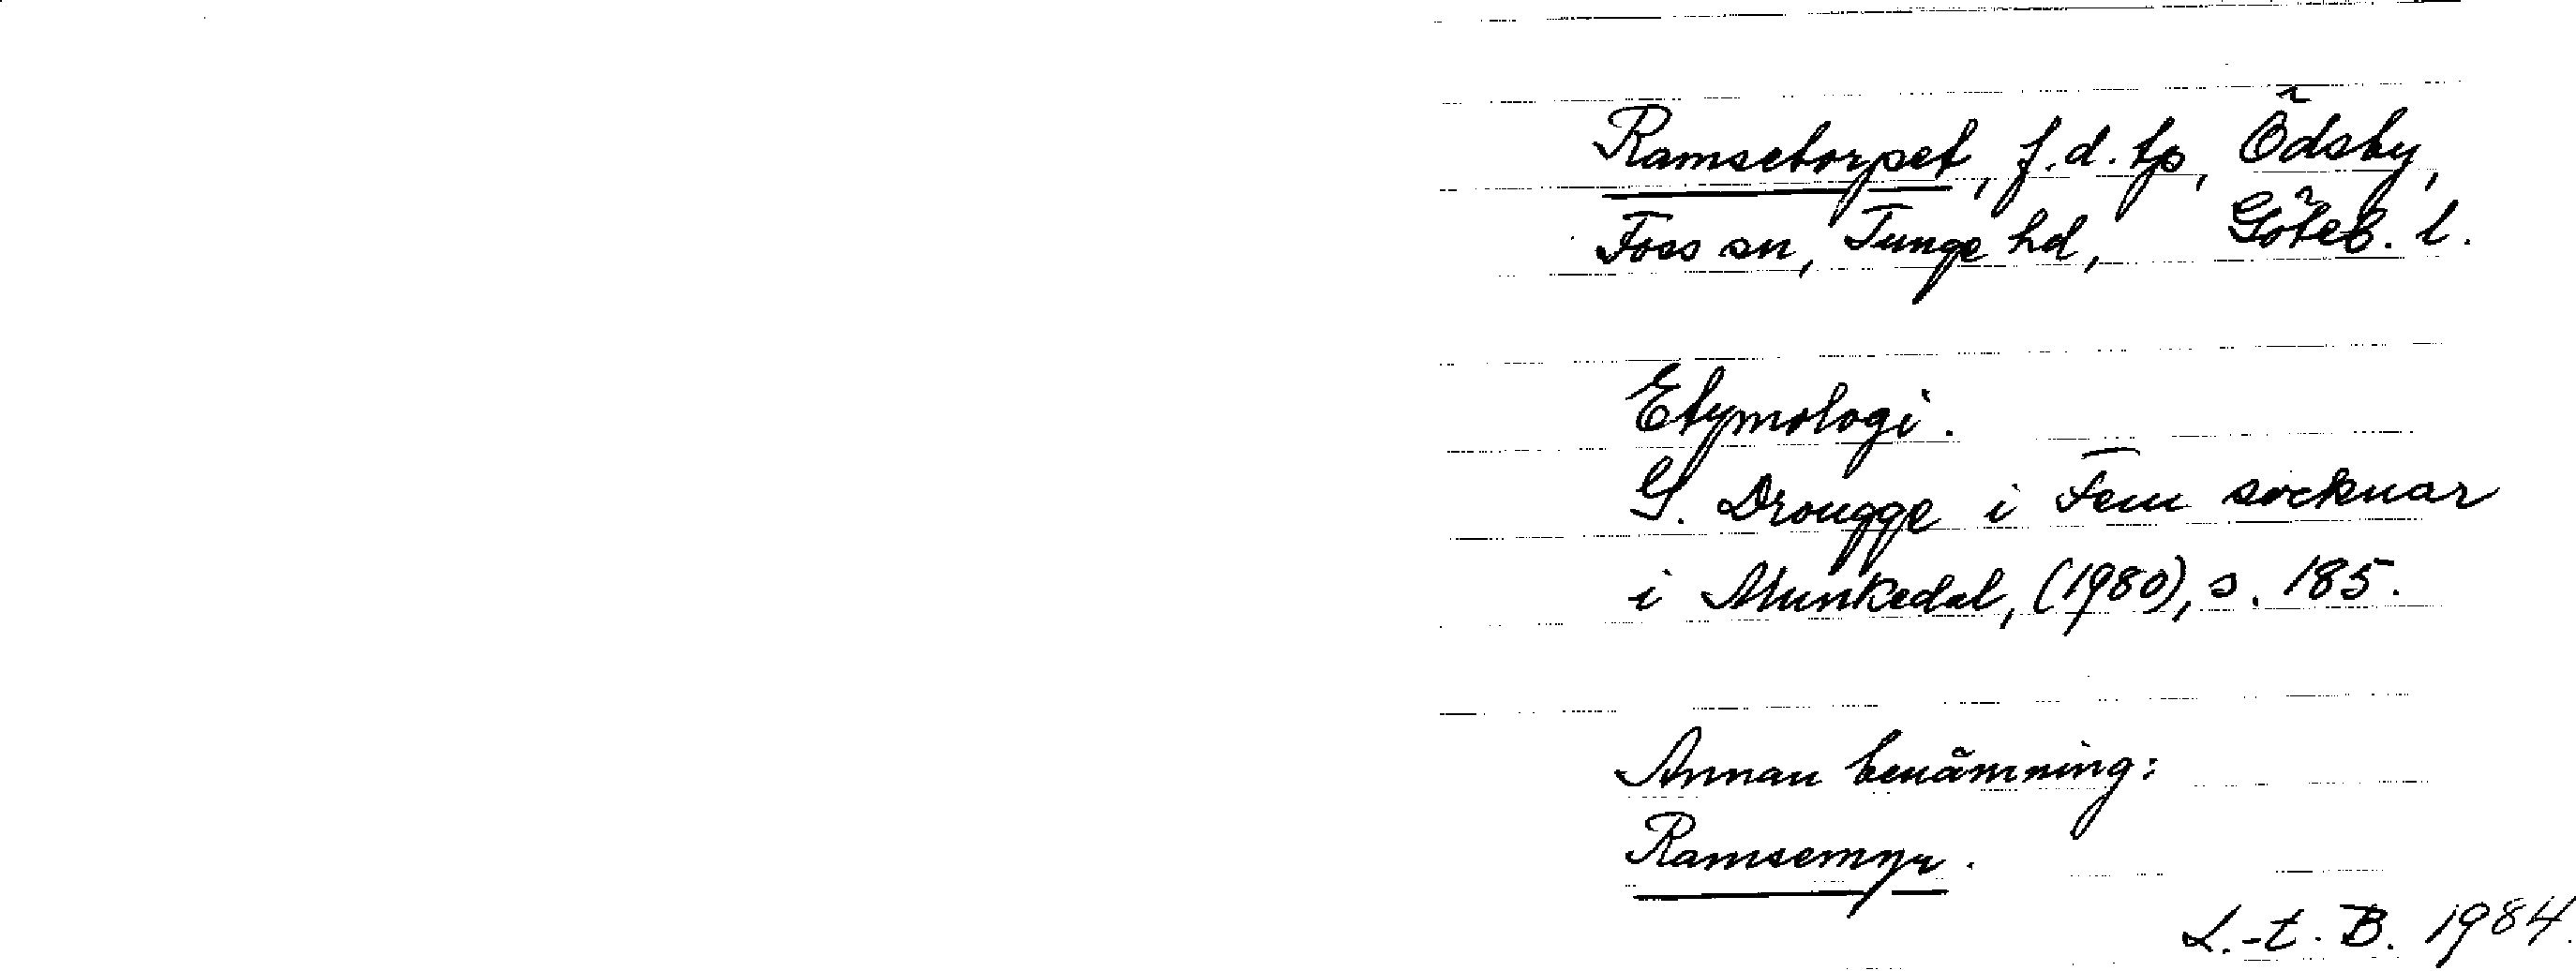 Ramsetorpet, f.d. tp, Ödsby,
Foss sn, Tunge hd, Göteb. l.
Etymologi.
G. Drougge i Fem socknar
i Munkedal, (1980), s. 185.
Annan benämning:
Ramsemyr.
L.-t. B. 1984.